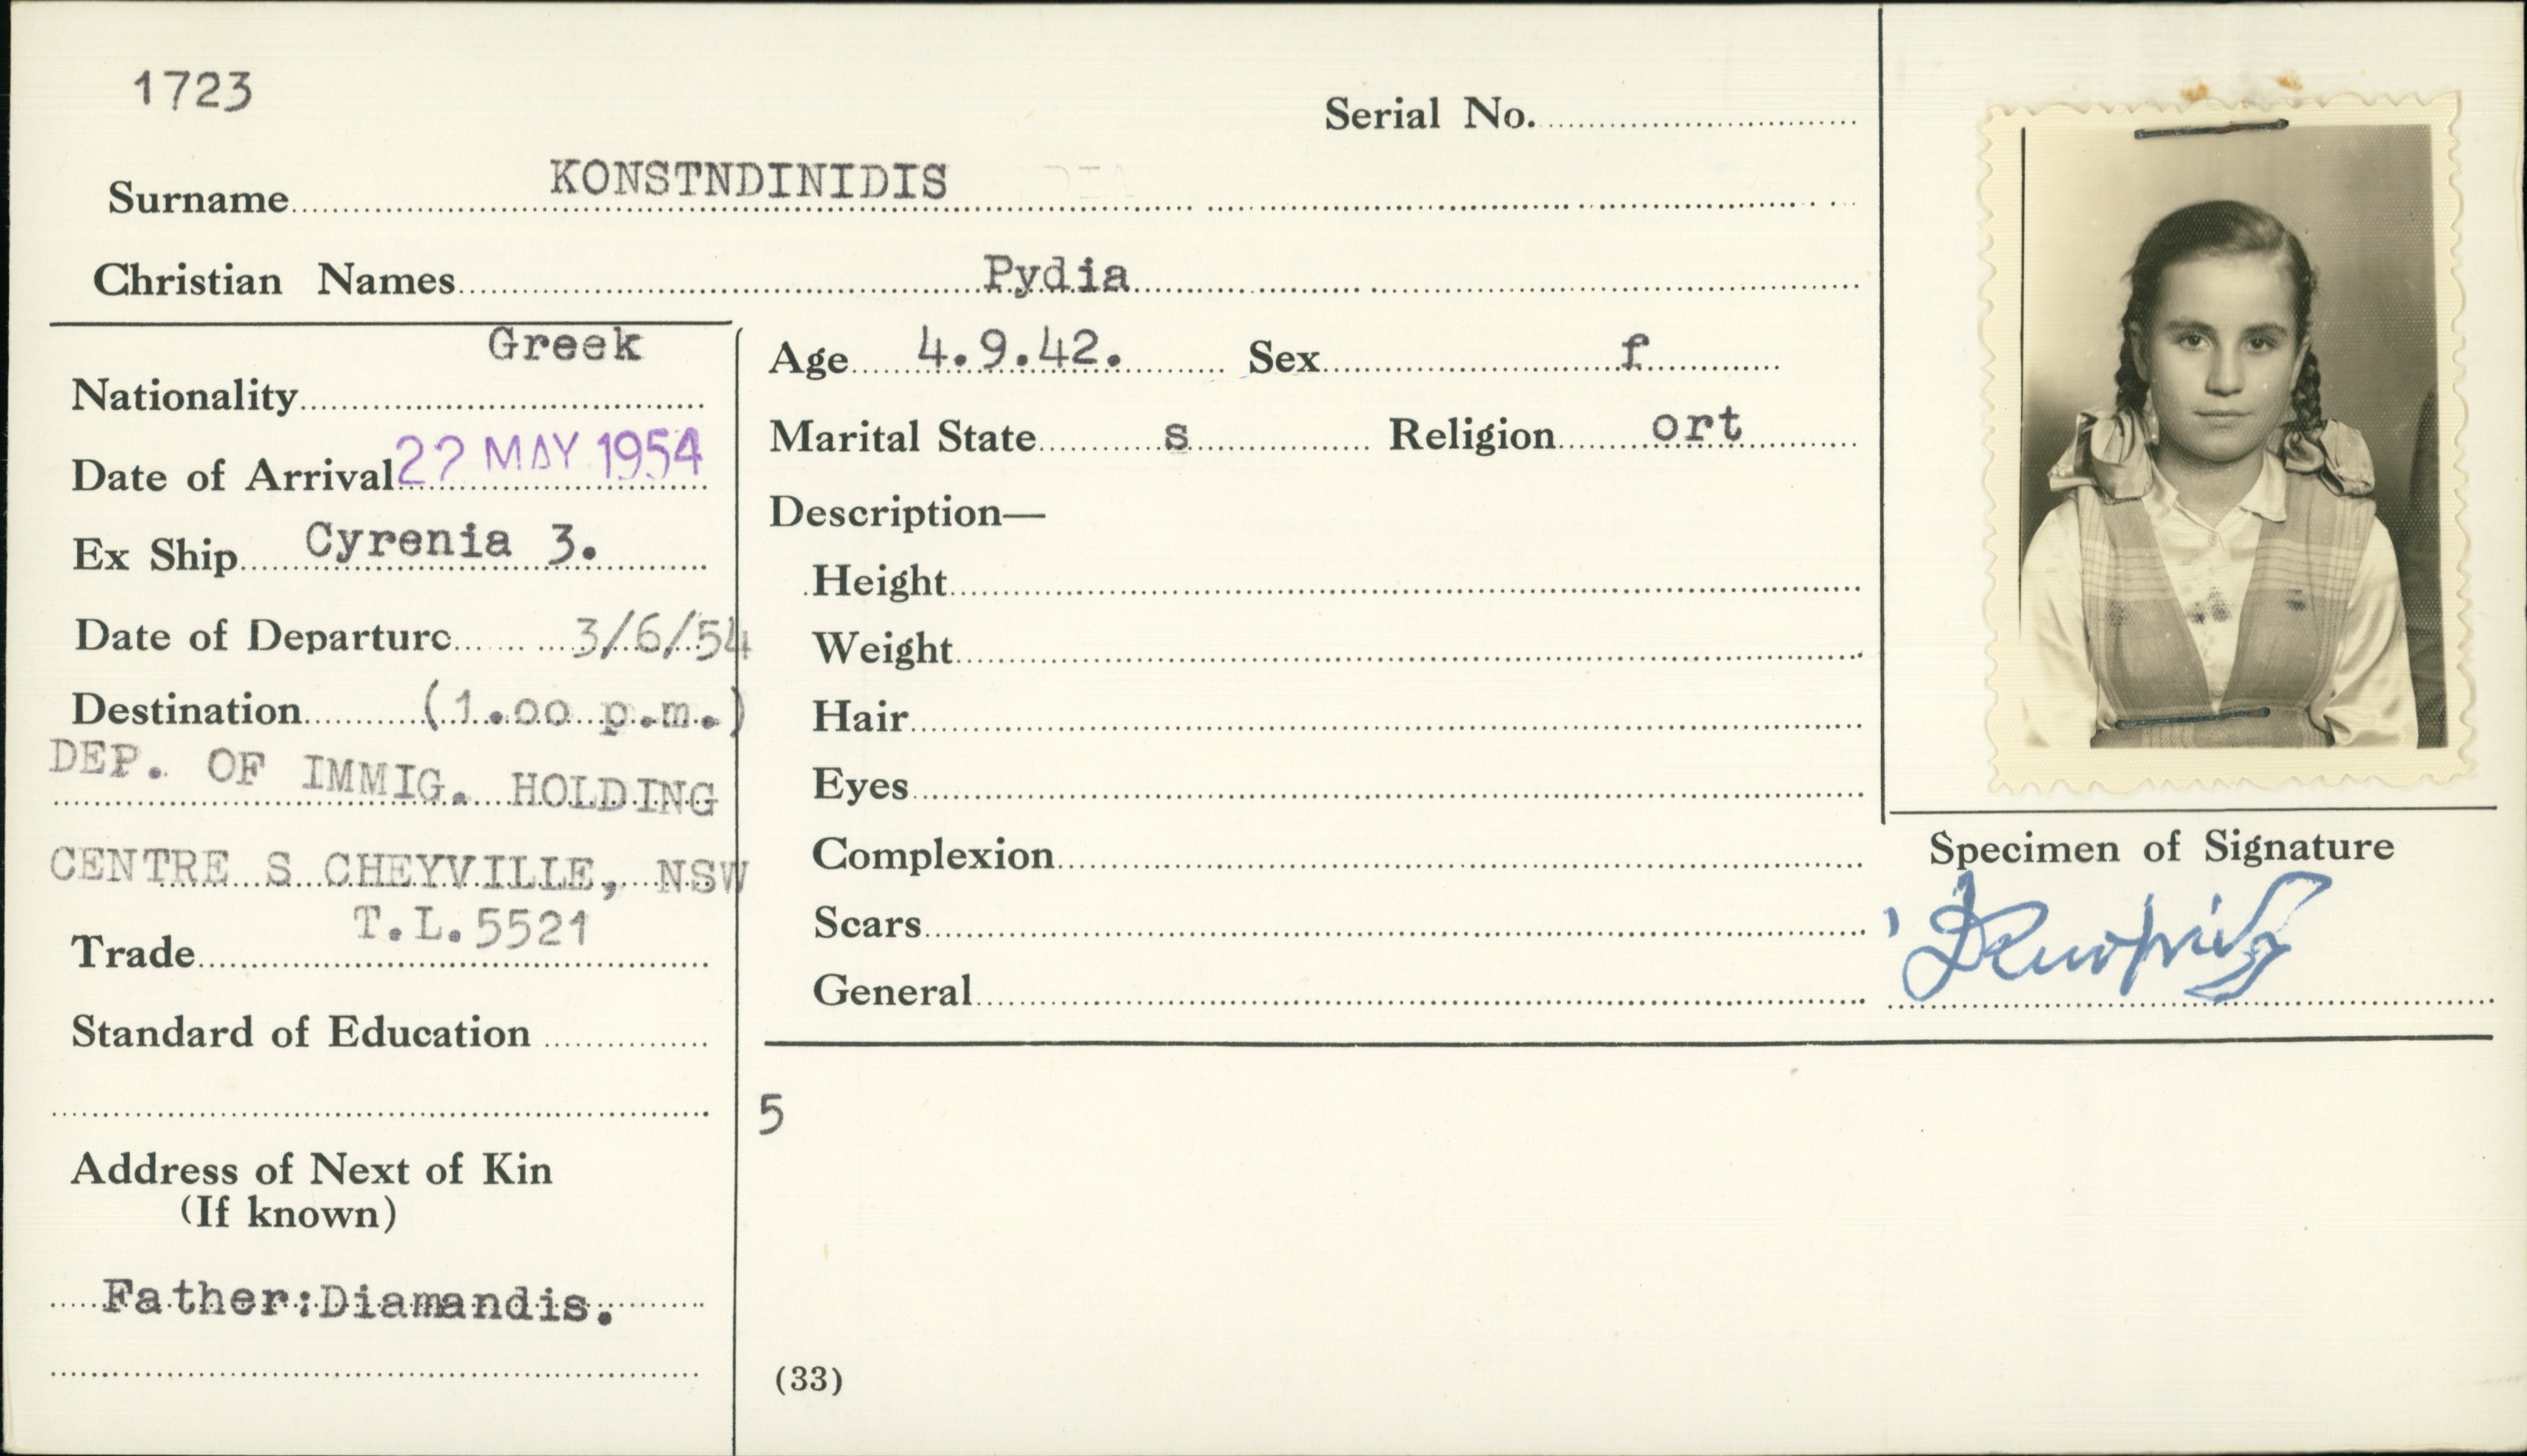 1723
Serial No.
Surname KONSTNDINIDIS
Christian Names Pydia
Greek
Nationality
Date of Arrival 22 MAY 1954
Ex Ship Cyrenia 3.
Date of Departure 3/6/54
Destination (1.00 p.m.)
DEP. OF IMMIG. HOLDING
CENTRE S CHEYVILLE, NSW
T.L.5521
Trade
Standard of Education
Address of Next of Kin
(If known)
Father:Diamandis.
Age 4.9.42. Sex f
Marital State s Religion ort
Description—
Height
Weight
Hair
Eyes
Complexion
Scars
General
5
(33)
Specimen of Signature